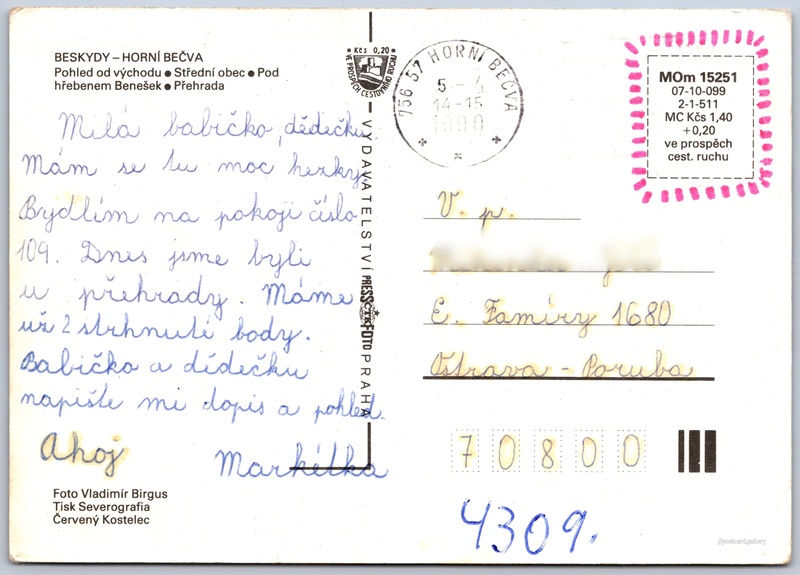 BESKYDY – HORNÍ BEČVA
Pohled od východu ● Střední obec ● Pod
hřebenem Benešek ● Přehrada
Milá babičko, dědečku.
Mám se tu moc hezky.
Bydlím na pokoji číslo
109. Dnes jsme byli
u přehrady. Máme
už 2 strhnuté body.
Babičko a dědečku
napište mi dopis a pohled.
Ahoj
Markétka
Foto Vladimír Birgus
Tisk Severografia
Červený Kostelec
Kčs 0,20
VE PROSPĚCH CESTOVNÍHO RUCHU
VYDAVATELSTVÍ PRESSFOTO PRAHA
ČTK
756 57 HORNÍ BEČVA
5 – 4
14-15
MOm 15251
07-10-099
2-1-511
MC Kčs 1,40
+0,20
ve prospěch
cest. ruchu
V. p.
E. Famíry 1680
Ostrava – Poruba
70800
4309.